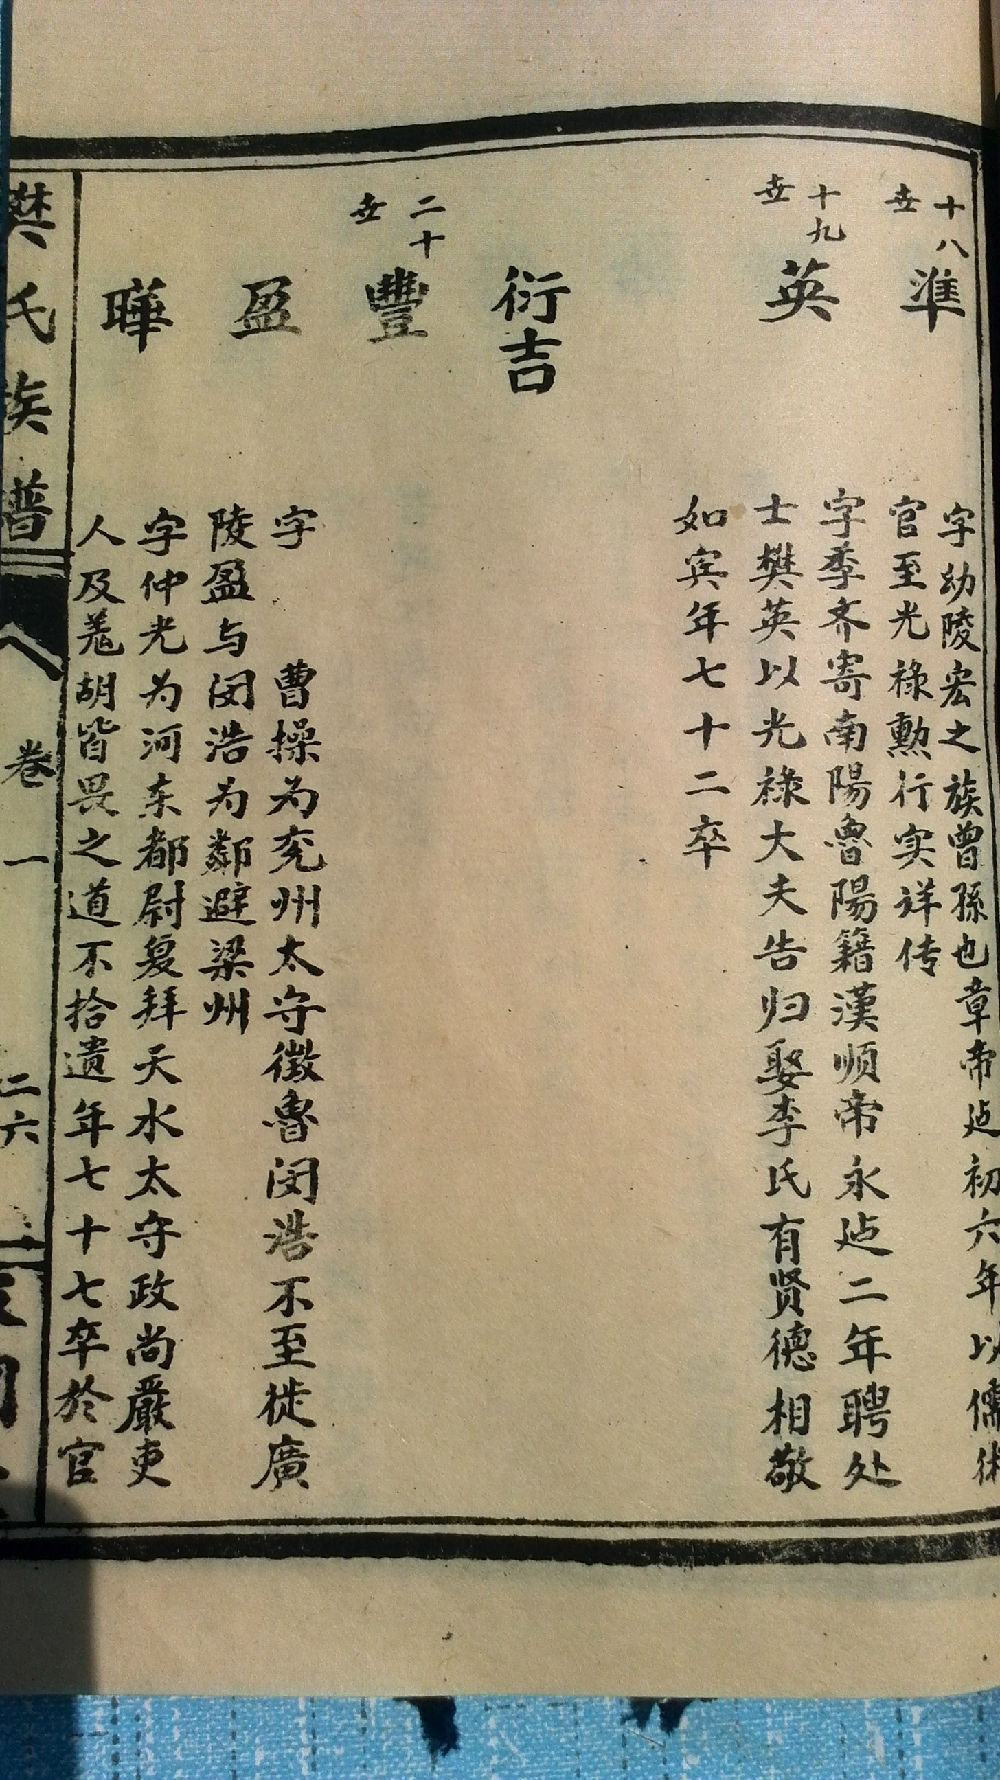 十八
世
準
字幼陵宏之族曾孫也章帝𨒪初六年以儒術
官至光祿勲行实详传
十九
世
英
字季齐寄南陽魯陽籍漢顺帝永𨒪二年聘处
士樊英以光祿大夫告归娶李氏有贤德相敬
如宾年七十二卒
衍吉
二十
世
豐
盈
字 曹操为兖州太守徵魯闵浩不至徙廣
陵盈与闵浩为鄰避梁州
曄
字仲光为河东都尉复拜天水太守政尚嚴吏
人及羌胡皆畏之道不拾遺年七十七卒於官
樊氏族譜
卷一
二六